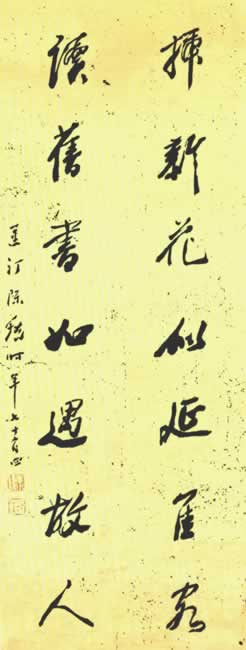 插新花似延佳客
讀舊書如遇故人
汀陳時年七十有四